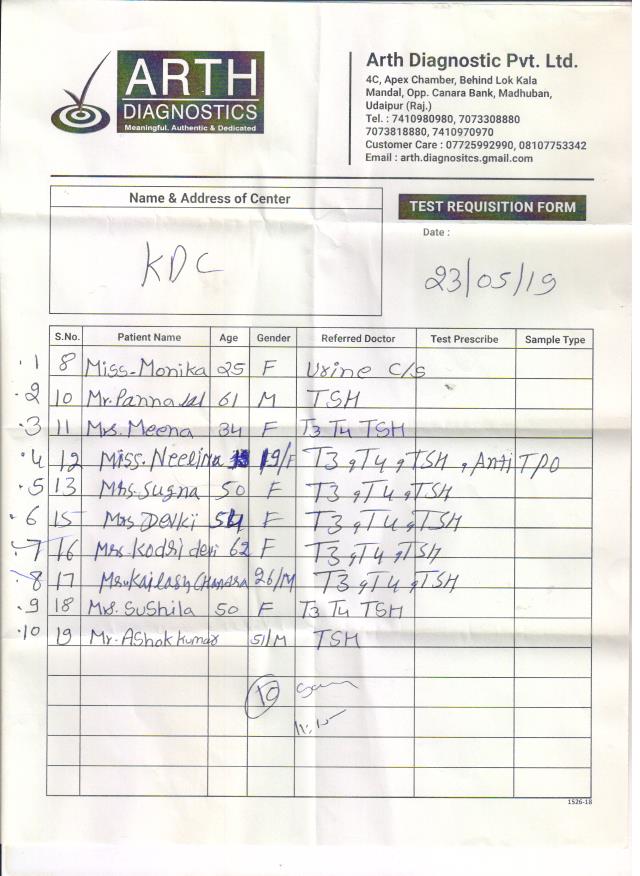 ARTH
DIAGNOSTICS
Meaningful, Authentic & Dedicated
Arth Diagnostic Pvt. Ltd.
4C, Apex Chamber, Behind Lok Kala
Mandal, Opp. Canara Bank, Madhuban,
Udaipur (Raj.)
Tel. : 7410980980, 7073308880
7073818880, 7410970970
Customer Care : 07725992990, 08107753342
Email : arth.diagnositcs.gmail.com
Name & Address of Center
KDC
TEST REQUISITION FORM
Date :
23/05/19
S.No. Patient Name Age Gender Referred Doctor Test Prescribe Sample Type
.1 8 Miss-Monika 25 F Urine C/S
.2 10 Mr. Panna lal 61 M TSH
.3 11 Mrs. Meena 34 F T3 T4 TSH
.4 12 Miss. Neelima 19/F T3, T4, TSH, Anti TPO
.5 13 Mrs. Sugna 50 F T3, T4, TSH
.6 15 Mrs Devki 54 F T3, T4, TSH
.7 16 Mrs. Kodri devi 62 F T3, T4, TSH
.8 17 Mr. Kailash Chandra 26/M T3, T4, TSH
.9 18 Mrs. Sushila 50 F T3 T4 TSH
.10 19 Mr. Ashok kumar 51/M TSH
10
11:15
1526-18